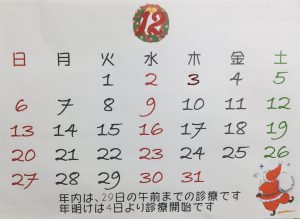 12
日 月 火 水 木 金 土
1 2 3 4 5
6 7 8 9 10 11 12
13 14 15 16 17 18 19
20 21 22 23 24 25 26
27 28 29 30 31
年内は、29日の午前までの診療です
年明けは4日より診療開始です